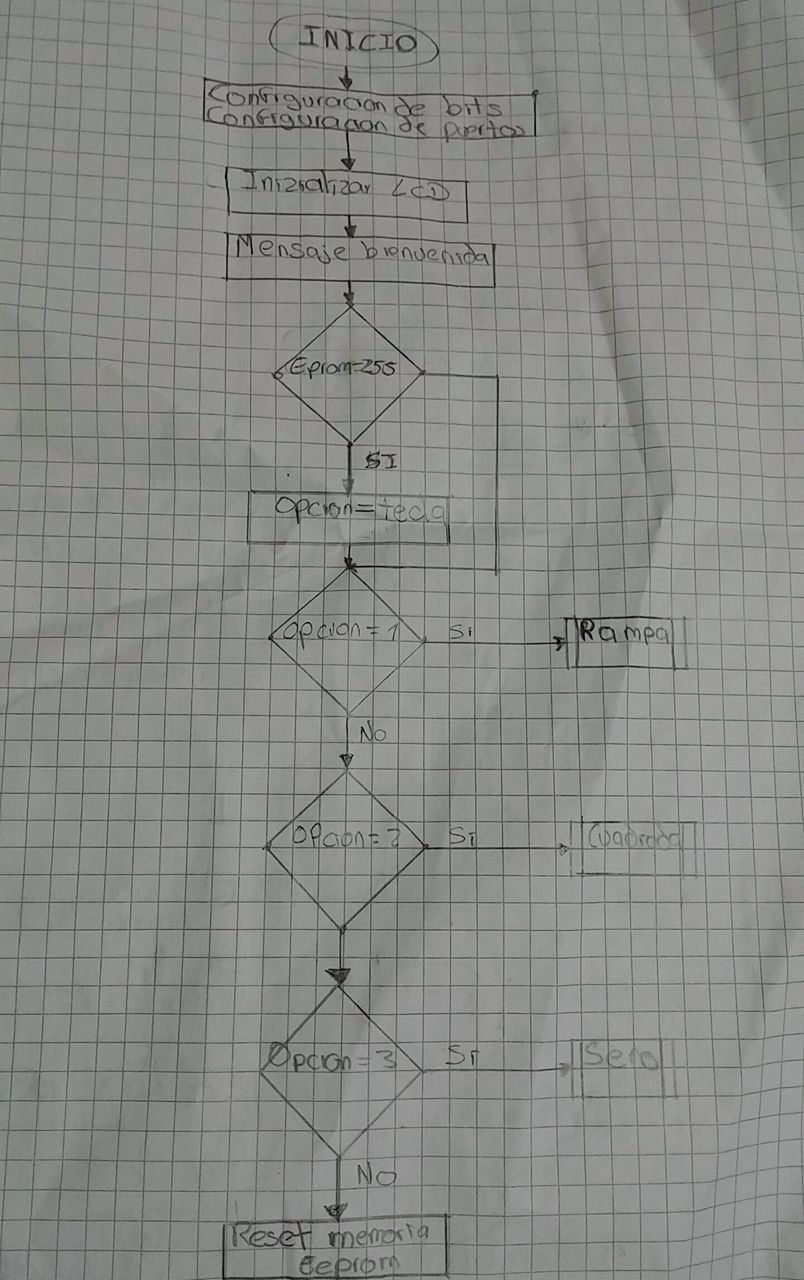 INICIO
Configuracion de bits
Configuracion de puertos
Inizializar LCD
Mensaje bienvenida
Eprom=255
SI
Opcion=tecla
Opcion=1
Si
Rampa
No
Opcion=2
Si
Cuadrada
Opcion=3
Si
Seno
No
Reset memoria
Eeprom